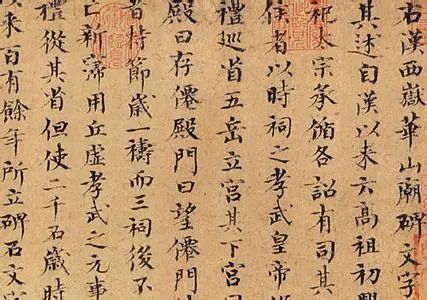 右漢西嶽華山廟碑文字
其述自漢以来云高祖初
祀太宗承循各詔有司其
侯者以時祠之孝武皇帝
禮巡省五岳立宮其下宮
殿曰存僊殿門曰望僊門
者持節歲一禱而三祠後不
亡新寖用丘虛孝武之元事
禮從其省但使二千石歲時
以来百有餘年所立碑石文